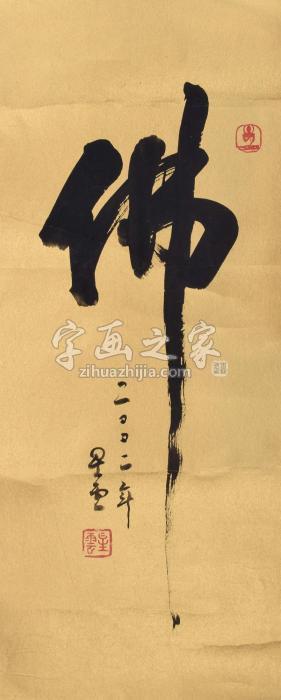 佛
二〇〇二年
星雲
星雲
字画之家
zihuazhijia.com